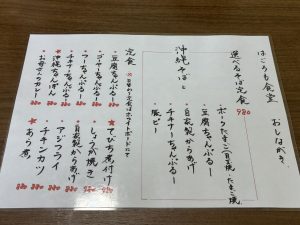 はごろも食堂
おしながき
選べるそば定食 980
沖縄そばと
・ポークたまご
・豆腐ちゃんぷるー
・チキナーちゃんぷるー
・自家製からあげ
定食
・豆腐ちゃんぷるー
・ゴーヤーちゃんぷるー
・フーちゃんぷるー
・チキナーちゃんぷるー
沖縄ちゃんぽん
お母さんのカレー
てびち煮付け
しょうが焼き
自家製からあげ
アジフライ
チキンカツ
あら煮